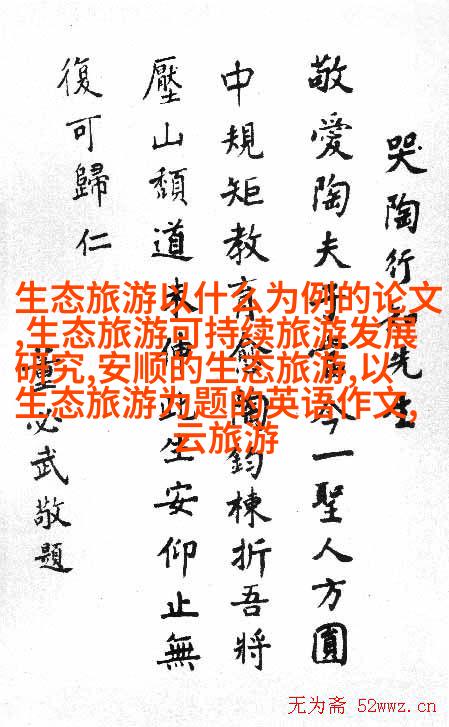 哭陶行知先生
敬愛陶夫子當今一聖人方圓
中規矩教育愈陶鈞棟折吾將
壓山頹道未伸此生安仰止無
復可歸仁
董必武敬題
生态旅游以什么为例的论文
,生态旅游可持续旅游发展
研究,安顺的生态旅游,以
生态旅游为题的英语作文,
云旅游
无为斋 52wwz.cn